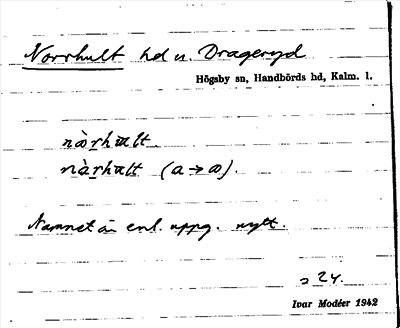 Norrhult hd u. Drageryd
Högsby sn, Handbörds hd, Kalm. l.
nàrhalt (a → æ).
Namnet är enl. uppg. nytt.
s 24.
Ivar Modéer 1942